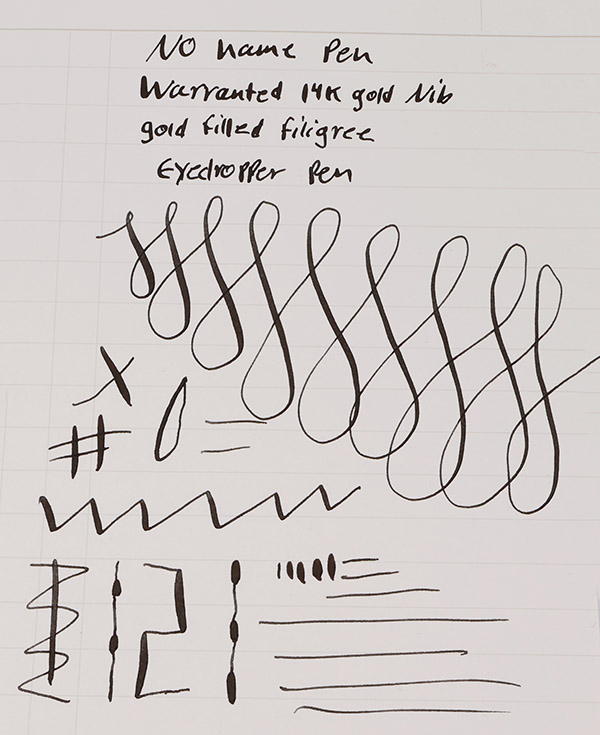 No name Pen
Warranted 14K gold Nib
gold filled filigree
Eyedropper Pen